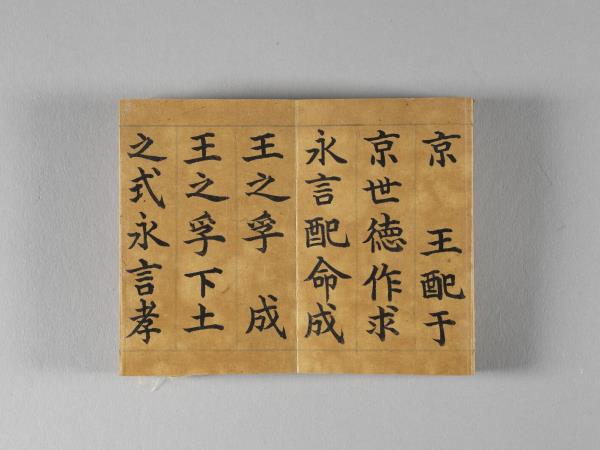 京　王配于
京世德作求
永言配命成
王之孚　成
王之孚下土
之式永言孝